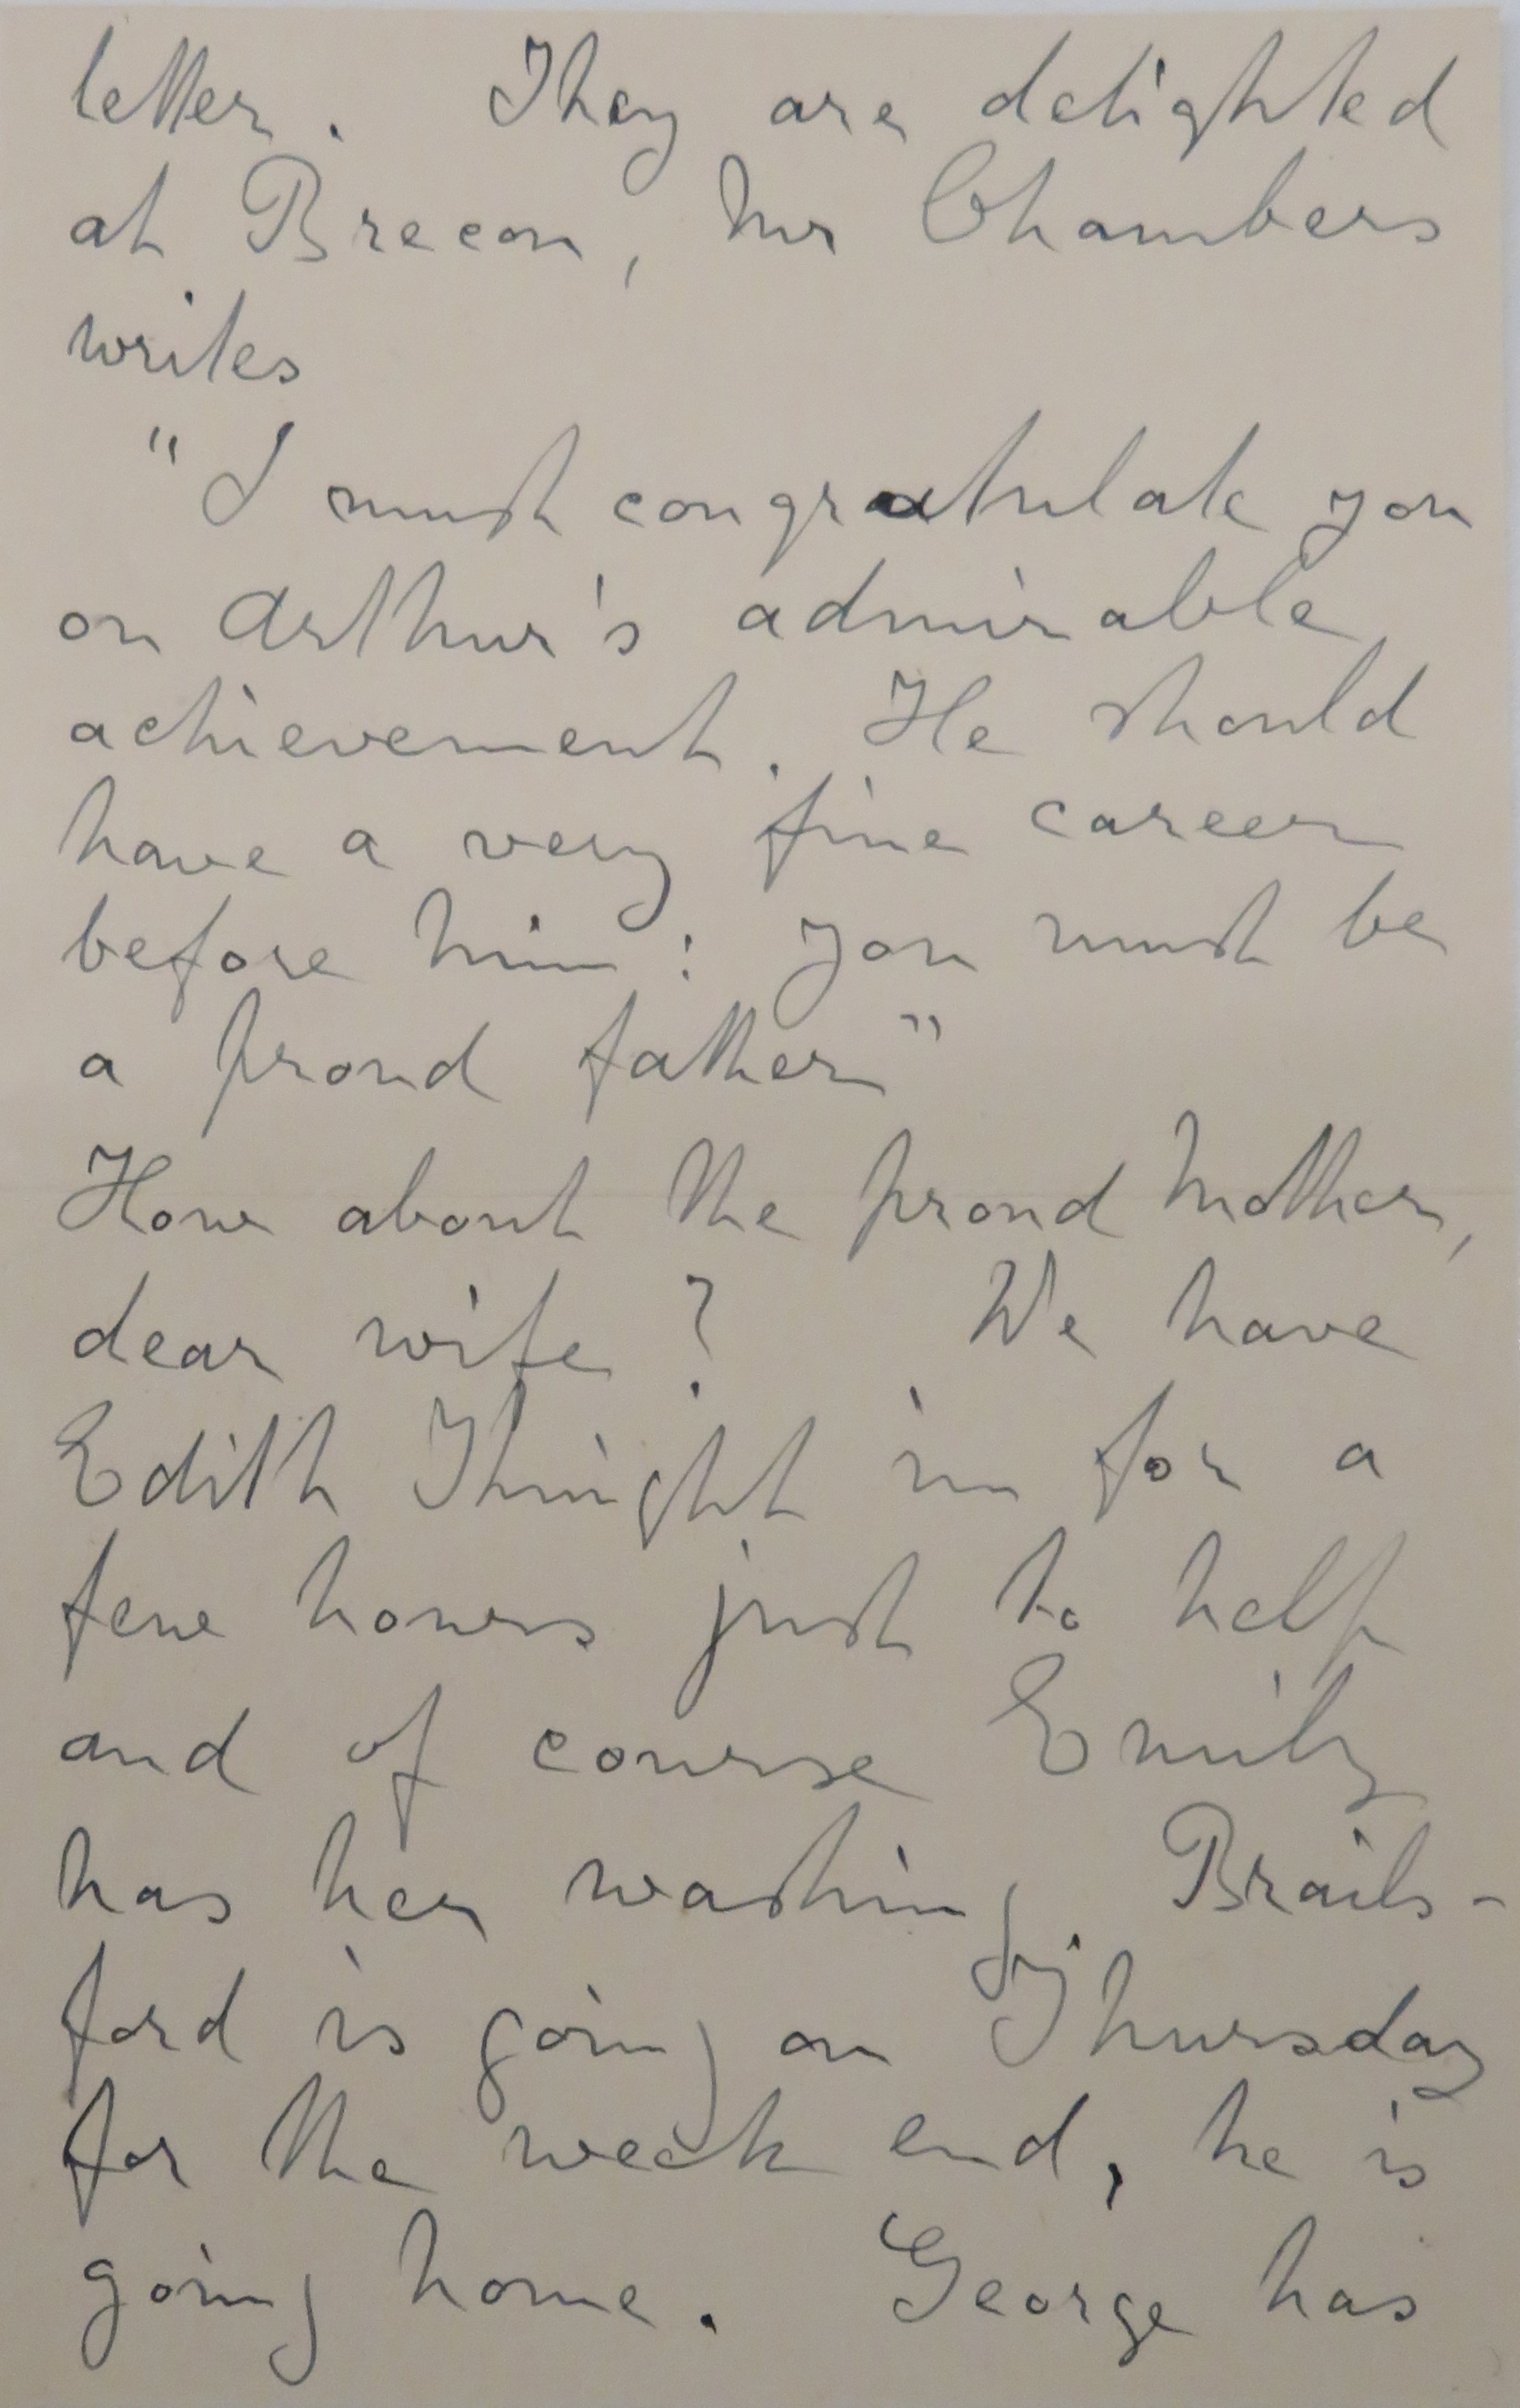 letter. They are delighted
at Brecon, Mr Chambers
writes
"I must congratulate you
on Arthur's admirable
achievement. He should
have a very fine career
before him: you must be
a proud father"
How about the proud Mother,
dear wife? We have
Edith in for a
few hours just to help
and of course Emily
has her washing. Brails-
ford is going on Thursday
for the week end, he is
going home. George has